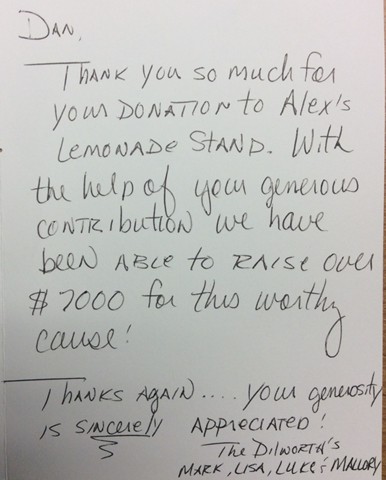 Dan,
Thank you so much for
your donation to Alex's
Lemonade Stand. With
the help of your generous
contribution we have
been able to raise over
$7000 for this worthy
cause!
Thanks again.... your generosity
is sincerely appreciated!
The Dilworth's
Mark, Lisa, Luke & Mallory